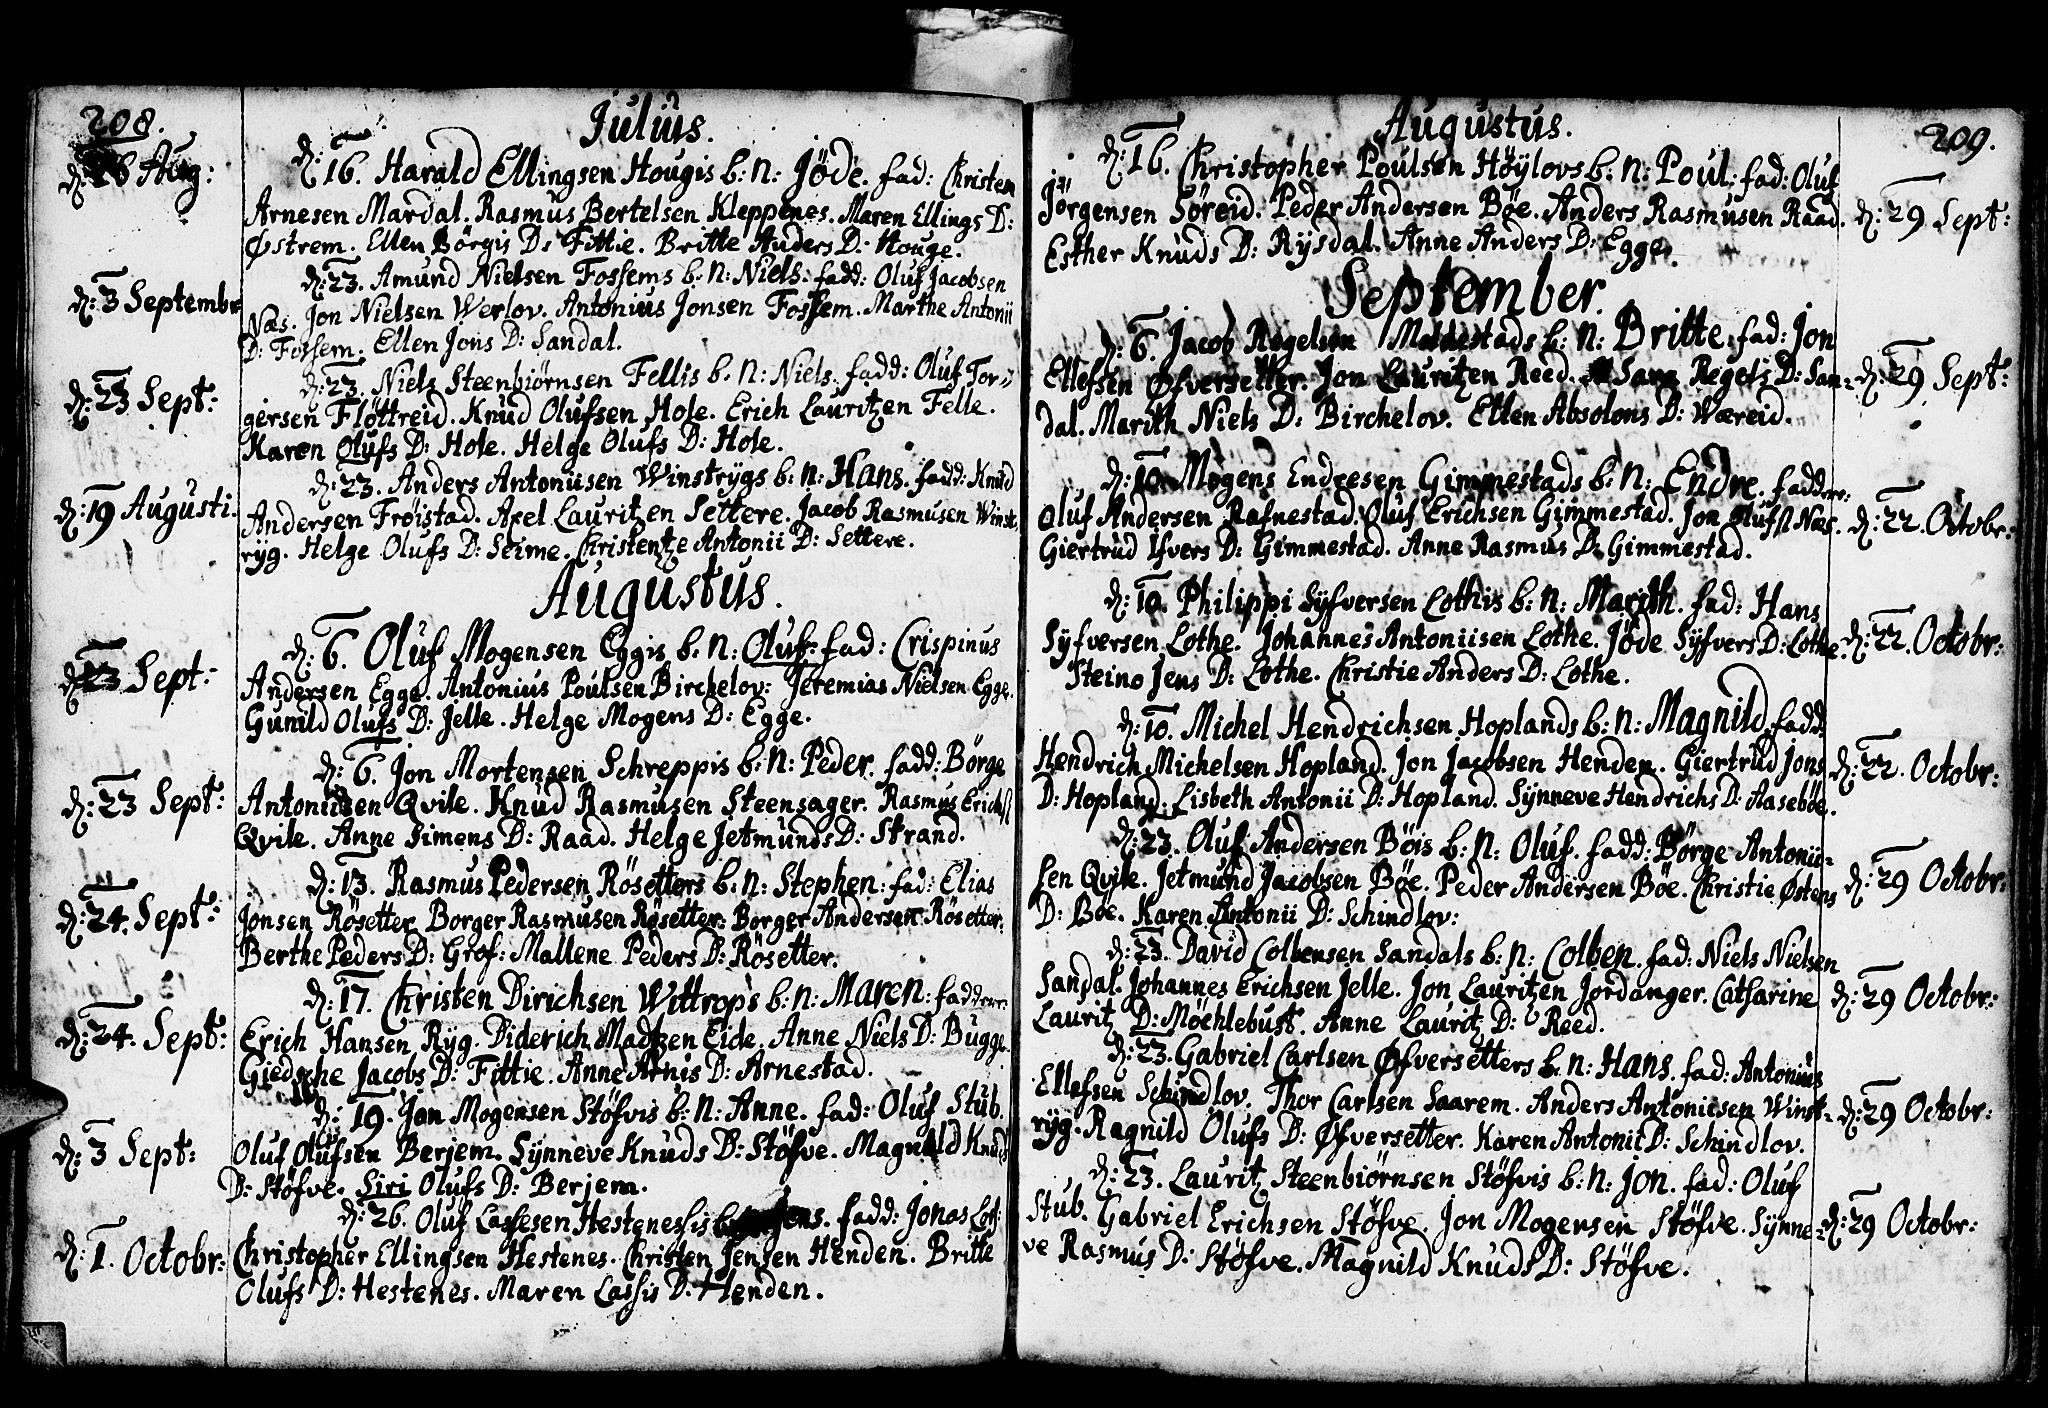 208.
Julius.
d: 26 Aug:
d: 16. Harald Ellingsen Hougis b: n: Jöde. fad: Christen
Arnesen Mardal. Rasmus Bertelsen Kleppenes. Maren Ellings D:
Østrem. Ellen Börgis D: Fittie. Britte Anders D: Houge.
d: 3 Septembr
d: 23. Amund Nielsen Fossems b: n: Niels. fadd: Oluf Jacobsen
Næs. Jon Nielsen Werlov. Antonius Jonsen Fossem. Marthe Antonii
D: Fossem. Ellen Jons D: Sandal.
d: 23 Sept:
d: 23. Niels Steenbiörnsen Fellis b: n: Niels. fadd: Oluf Tor=
gersen Flöttreid. Knud Olufsen Hole. Erich Lauritzen Felle.
Karen Olufs D: Hole. Helge Olufs D: Hole.
d: 19 Augusti.
d: 23. Anders Antoniisen Winstrÿgs b: n: Hans. fadd: Knud
Andersen Fröistad. Axel Lauritzen Settere. Jacob Rasmusen Winst=
rÿg. Helge Olufs D: Seime. Christentze Antonii D: Settere.
Augustus.
d: 23 Sept:
d: 6. Oluf Mogensen Eggis b: n: Oluf: fad: Crispinus
Andersen Egge. Antonius Poulsen Birchelov: Jeremias Nielsen Egge.
Gunild Olufs D: Jelle. Helge Mogens D: Egge.
d: 23 Sept:
d: 6. Jon Mortensen Schreppis b: n: Peder. fadd: Börge
Antoniisen Qvile. Knud Rasmusen Steensager. Rasmus Erichs
Qvile. Anne Simens D: Raad. Helge Jetmunds D: Strand.
d: 24. Sept:
d: 13. Rasmus Pedersen Rösetters b: n: Stephen: fad: Elias
Jonsen Rösetter. Borger Rasmusen Rösetter: Borger Andersen Rösetter:
Berthe Peders D: Grof: Mallene Peders D: Rösetter.
d: 24. Sept:
d: 17. Christen Dirichsen Wittrops b: n: Maren: faddere:
Erich Hansen Rÿg. Diderich Madtzen Eide. Anne Niels D: Bugge.
Giedsche Jacobs D: Fittie. Anne Arnis D: Arnestad.
d: 3 Sept:
d: 19. Jon Mogensen Stöfvis b: n: Anne. fad: Oluf Stub.
Oluf Olufsen Berjem. Sÿnneve Knuds D: Stöfve. Magnild Knuds
D: Stöfve. Siri Olufs D: Berjem.
d: 1. Octobr:
d: 26. Oluf Lassesen Hestenessis b: n: Jens. fadd: Jonas Lot:
Christopher Ellingsen Hestenes. Christen Jensen Henden. Britte
Olufs D: Hestenes. Maren Lassis D: Henden.
209.
Augustus.
d: 16. Christopher Poulsen Höÿlovs b: n: Poul: fad: Oluf
Jörgensen Söreid. Peder Andersen Böe. Anders Rasmusen Raad.
Esther Knuds D: Rÿsdal. Anne Anders D: Egge.
d: 29 Sept:
September.
d: 6. Jacob Regelsen Moldestads b: n: Britte. fad: Jon
Ellefsen Øfversetter. Jon Lauritzen Reed. Sara Regels D: San=
dal. Marith Niels D: Birchelov. Ellen Absolons D: Wæreid.
d: 29 Sept:
d: 10. Mogens Endresen Gimmestads b: n: Endre. faddere:
Oluf Andersen Rafnestad. Oluf Erichsen Gimmestad. Jon Olufs Næs.
Giertrud Ifvers D: Gimmestad. Anne Rasmus D: Gimmestad.
d: 22. Octobr:
d: 10. Philippi Sÿfversen Lothis b: n: Marith. fad: Hans
Sÿfversen Lothe. Johannes Antoniisen Lothe. Jöde Sÿfvers D: Lothe.
Steino Jens D: Lothe. Christie Anders D: Lothe.
d: 22. Octobr:
d: 10. Michel Hendrichsen Hoplands b: n: Magnild. fadd:
Hendrich Michelsen Hopland. Jon Jacobsen Henden. Giertrud Jons
D: Hopland. Lisbeth Antonii D: Hopland. Sÿnneve Hendrichs D: Aaseböe.
d: 22. Octobr:
d: 23. Oluf Andersen Böis b: n: Oluf. fadd: Börge Antonii=
sen Qvile. Jetmund Jacobsen Böe. Peder Andersen Böe. Christie Østens
D: Böe. Karen Antonii D: Schindlov:
d: 29 Octobr:
d: 23. David Colbensen Sandals b: n: Colben. fad: Niels Nielsen
Sandal. Johannes Erichsen Jelle. Jon Lauritzen Jordanger. Catharine
Lauritz D: Möchlebust. Anne Lauritz D: Reed.
d: 29 Octobr:
d: 23. Gabriel Carlsen Øfversetters b: n: Hans. fad: Antonius
Ellefsen Schindlov. Thor Carlsen Saarem. Anders Antoniisen Winst=
rÿg. Ragnild Olufs D: Øfversetter. Karen Antonii D: Schindlov.
d: 29 Octobr:
d: 23. Lauritz Steenbiörnsen Stöfvis b: n: Jon. fad: Oluf
Stub. Gabriel Erichsen Stöfve. Jon Mogensen Stöfve. Sÿnne=
ve Rasmus D: Stöfve. Magnild Knuds D: Stöfve.
d: 29 Octobr: